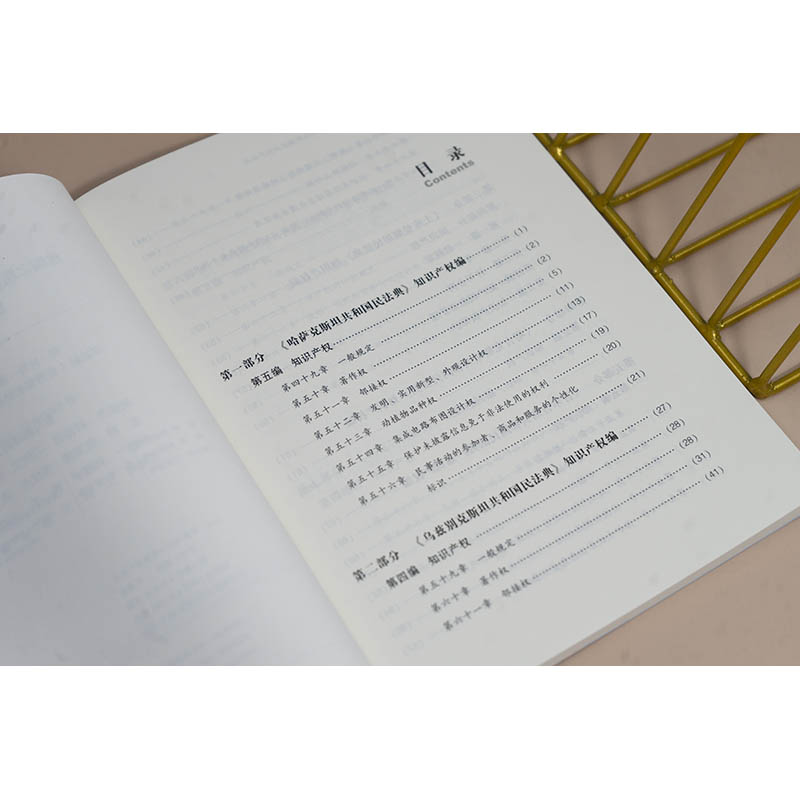 目 录
Contents
第一部分 《哈萨克斯坦共和国民法典》知识产权编 (1)
第五编 知识产权 (2)
第四十九章 一般规定 (2)
第五十章 著作权 (5)
第五十一章 邻接权 (11)
第五十二章 发明、实用新型、外观设计权 (13)
第五十三章 动植物品种权 (17)
第五十四章 集成电路布图设计权 (19)
第五十五章 保护未披露信息免于非法使用的权利 (20)
第五十六章 民事活动的参加者、商品和服务的个性化
标识 (21)
第二部分 《乌兹别克斯坦共和国民法典》知识产权编 (27)
第四编 知识产权 (28)
第五十九章 一般规定 (28)
第六十章 著作权 (31)
第六十一章 邻接权 (41)